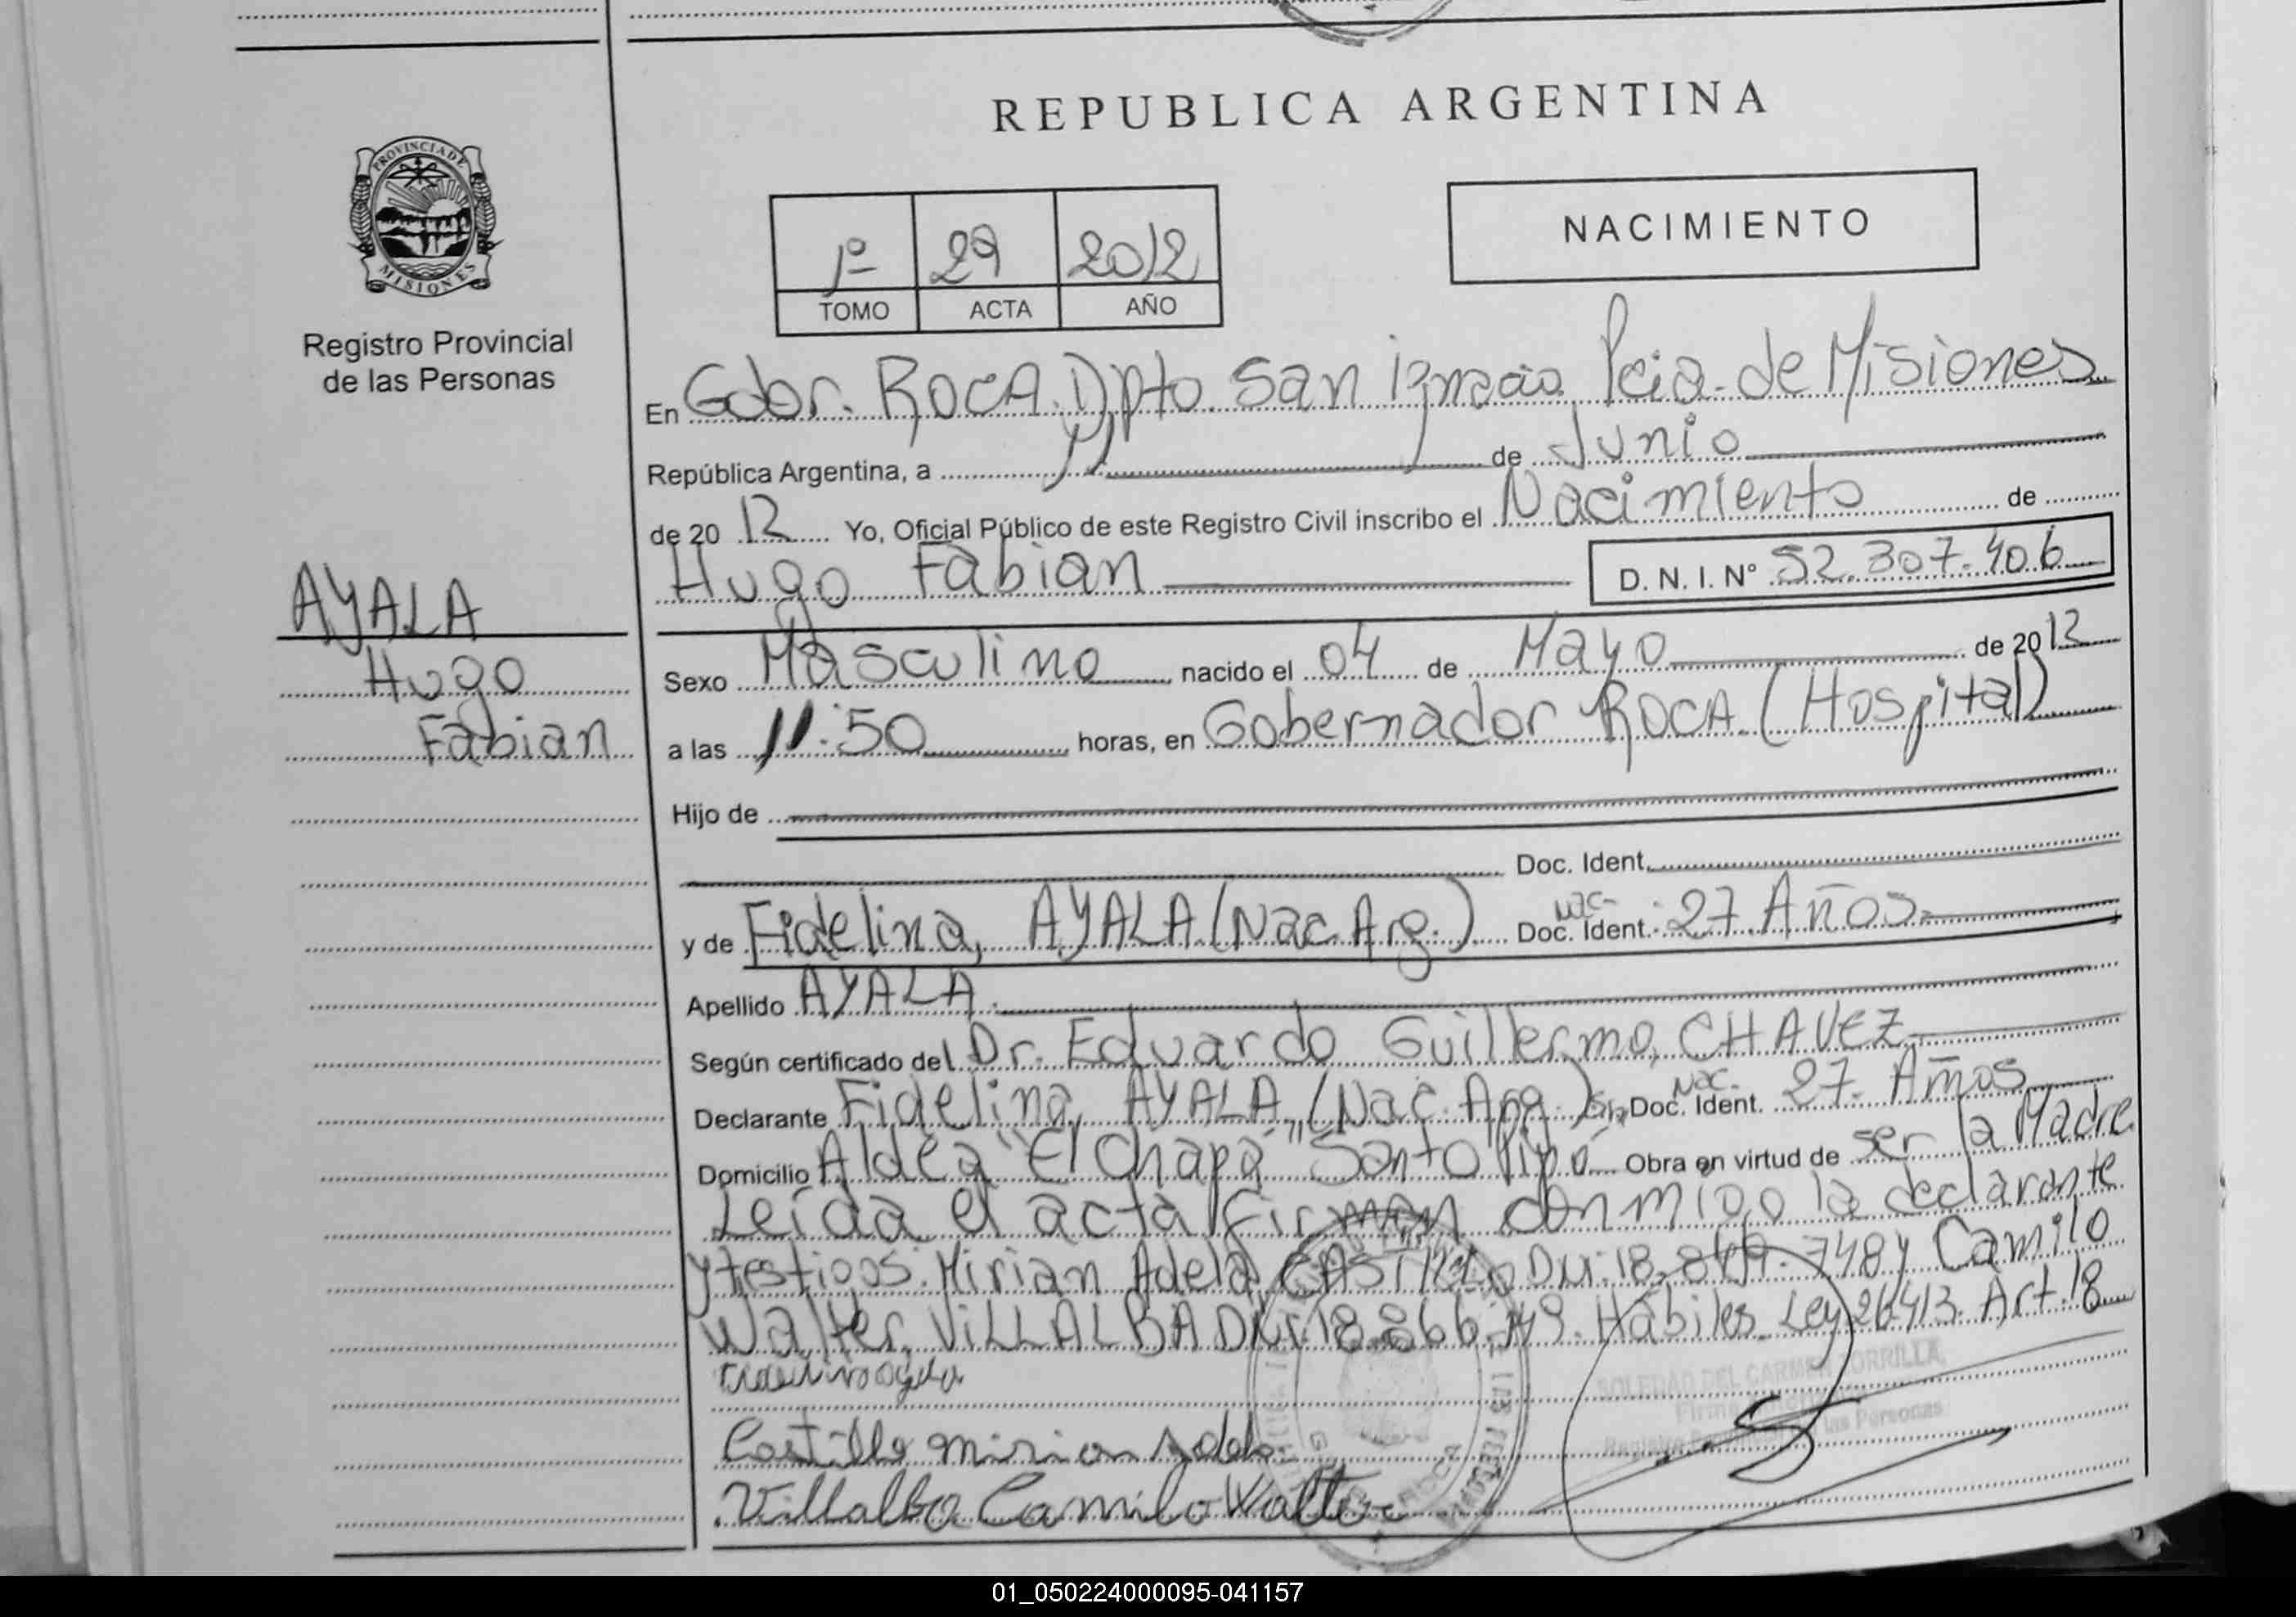 REPUBLICA ARGENTINA
PROVINCIA DE
MISIONES
Registro Provincial
de las Personas
NACIMIENTO
1º 29 2012
TOMO ACTA AÑO
En Gdor. ROCA. Dpto. San Ignacio. Pcia. de Misiones
República Argentina, a 11 de Junio
de 2012 Yo, Oficial Público de este Registro Civil inscribo el Nacimiento de
Hugo Fabian D. N. I. Nº 52.307.406
AYALA
Hugo
Fabian
Sexo Masculino nacido el 04 de Mayo de 2012
a las 11:50 horas, en Gobernador ROCA. (Hospital)
Hijo de
Doc. Ident.
y de Fidelina, AYALA (Nac Arg.) Doc. Ident. nac. 27 Años
Apellido AYALA.
Según certificado del Dr. Eduardo Guillermo, CHAVEZ
Declarante Fidelina, AYALA, (Nac. Arg.) Doc. Ident. Nac. 27. Años
Domicilio Aldea "El Chapá" Santo Pipó Obra en virtud de ser la Madre
Leída el acta firman conmigo la declarante
y testigos: Mirian Adela CASTILLO DNI: 18. 748 y Camilo
Walter, VILLALBA DNI: 18.866.149. Hábiles. Ley 26413. Art. 18
Castillo Mirian Adela
Villalba Camilo Walter
SOLEDAD DEL CARMEN ZORRILLA
Firma
Registro Provincial de las Personas
ROCA
01_050224000095-041157